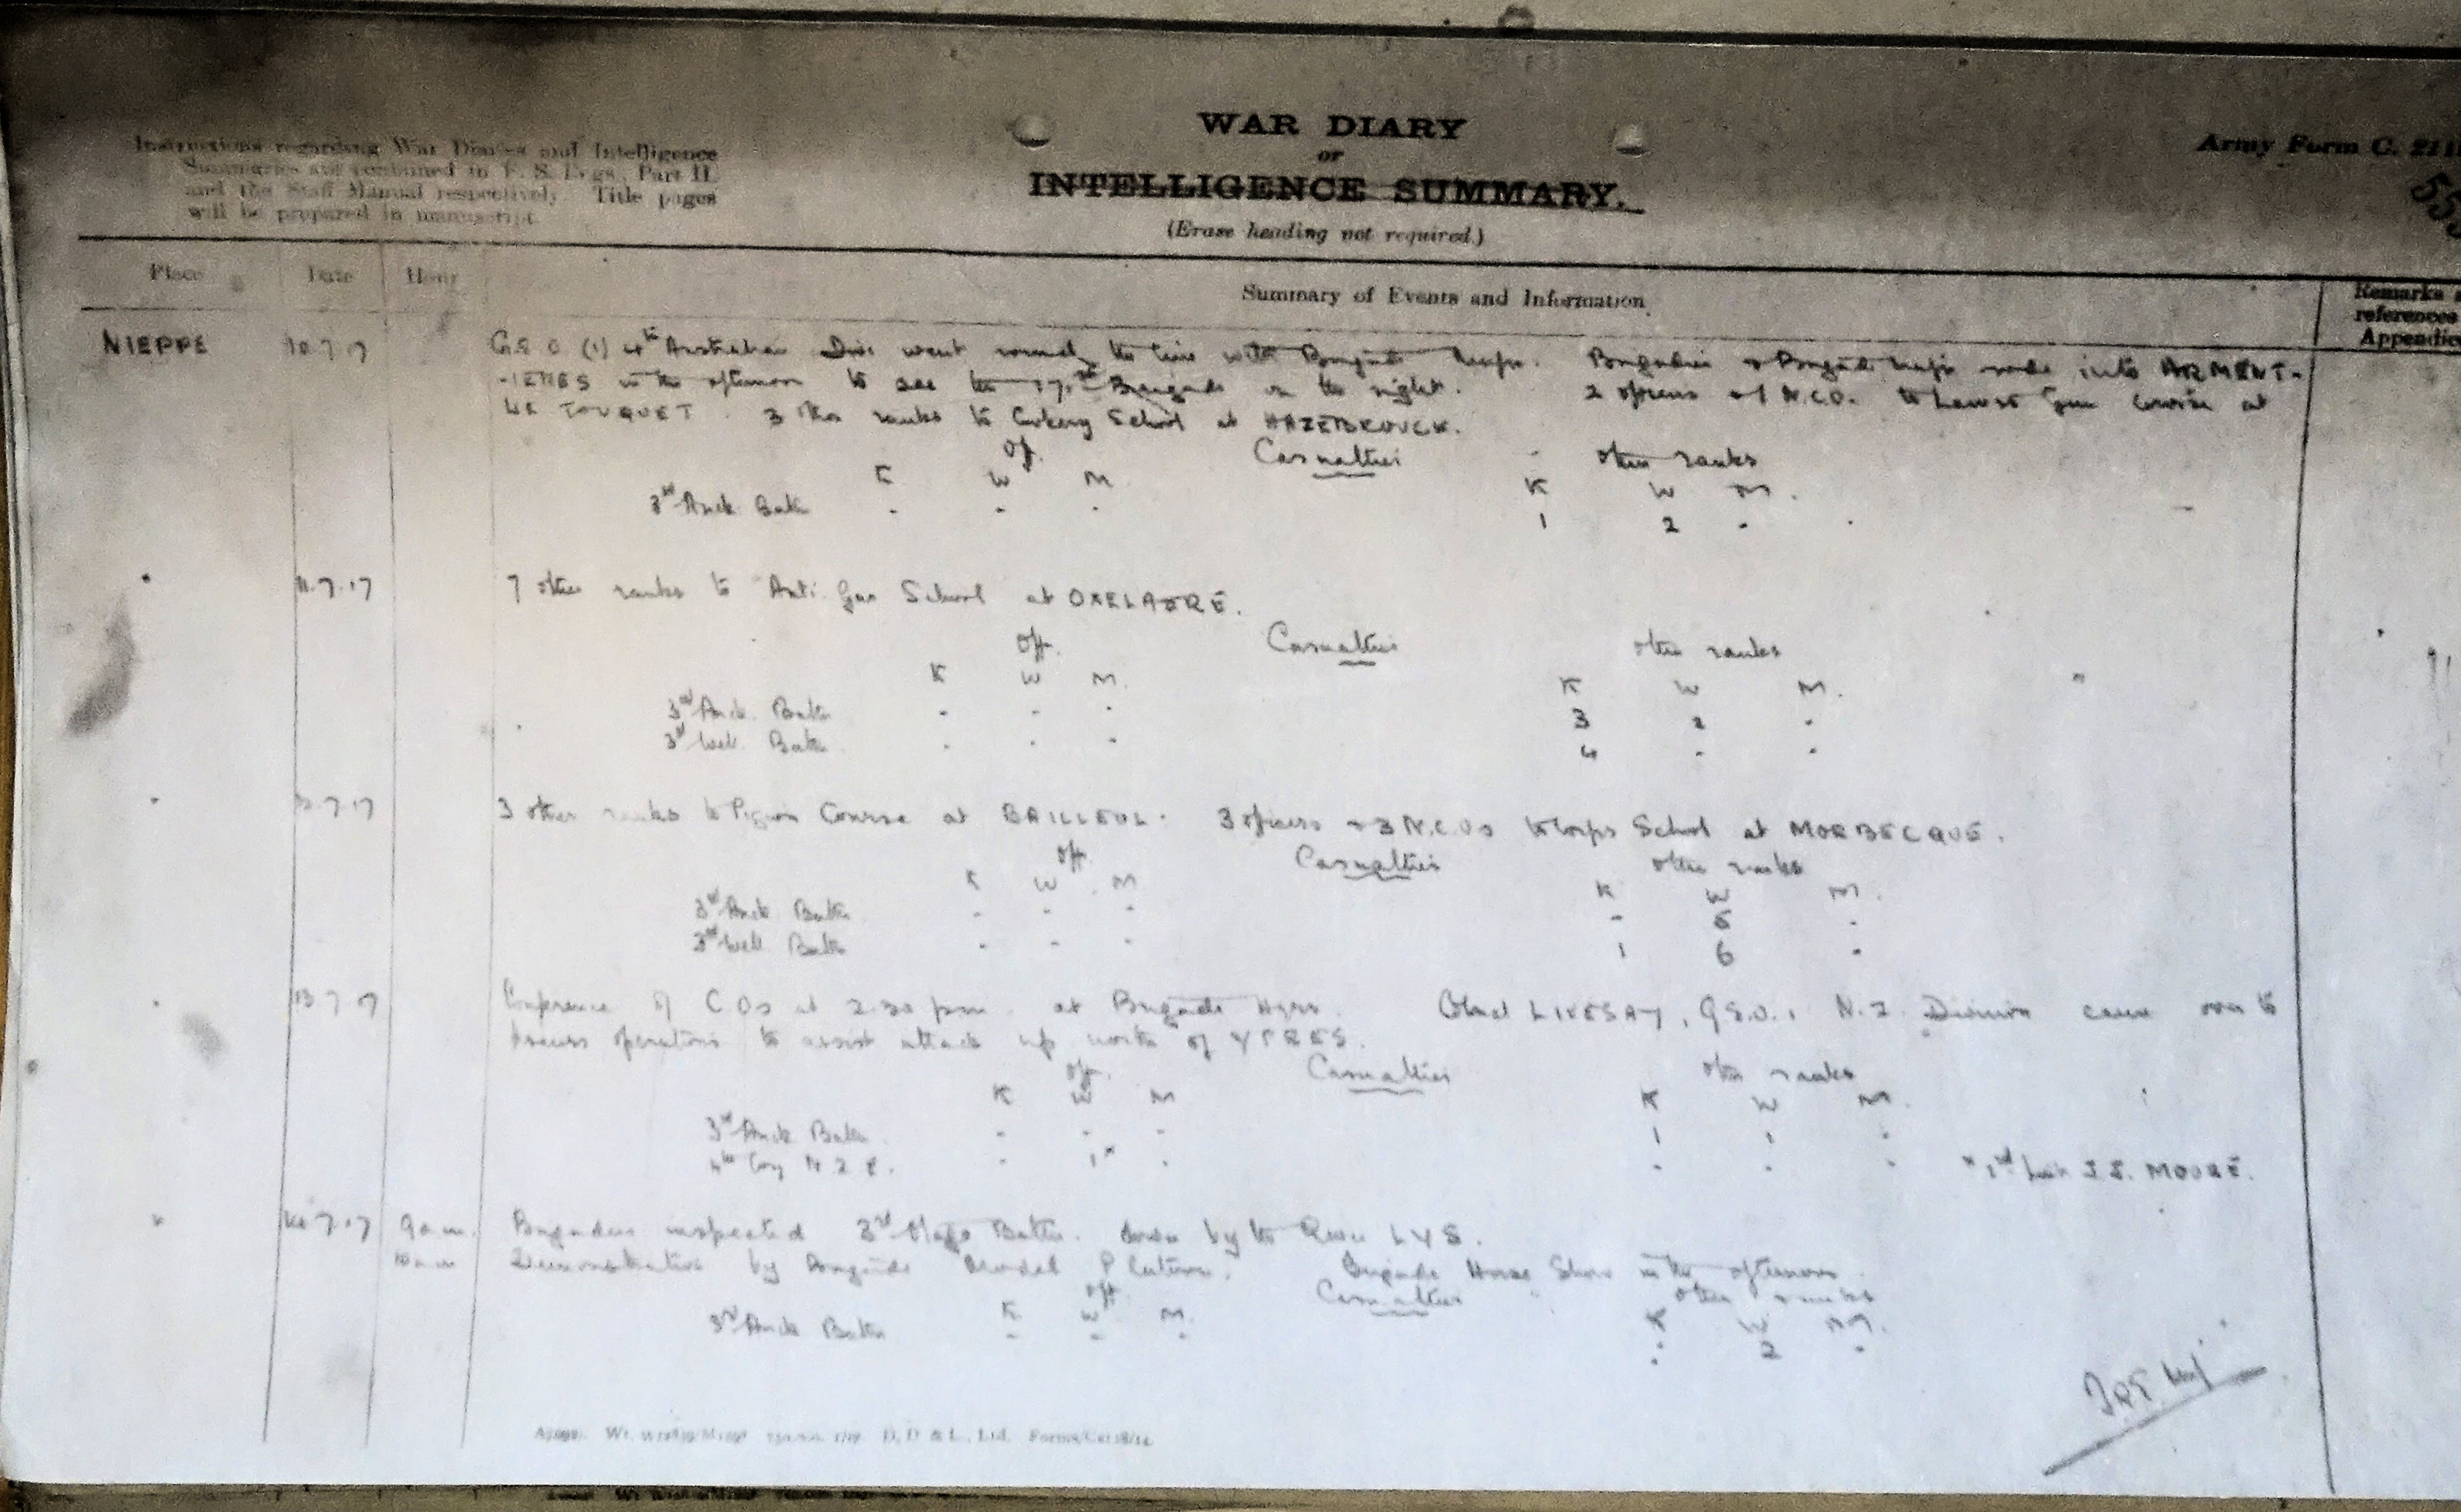 WAR DIARY
or
INTELLIGENCE SUMMARY.
(Erase heading not required.)
Instructions regarding War Diaries and Intelligence
Summaries are contained in F. S. Regs., Part II.
and the Staff Manual respectively. Title pages
will be prepared in manuscript.
Army Form C. 211
Place Date Hour Summary of Events and Information Remarks
references
Appendic
NIEPPE 10.7.17 G.S.O (1) 4th Australian Div. went round the line with Brigade Major. Brigadier & Brigade Major rode into ARMENT-
-IERES in the afternoon to see the Brigade on the right. 2 officers & 1 N.C.O. to Lewis Gun Course at
LE TOUQUET. 3 other ranks to Cookery School at HAZEBROUCK.
Off. Casualties other ranks
K W M. K W M.
3rd Auck Batn - - - 1 2 -
" 11.7.17 7 other ranks to Anti Gas School at OXELAERE.
Off. Casualties other ranks
K W M. K W M.
3rd Auck. Batn - - - 3 2 -
3rd Well. Batn - - - 4 - -
" 12.7.17 3 other ranks to Pigeon Course at BAILLEUL. 3 officers & 3 N.C.Os to Corps School at MORBECQUE.
Off. Casualties other ranks
K W M K W M.
3rd Auck Batn - - - - 5 -
3rd Well. Batn - - - 1 6 -
" 13.7.17 Conference of C.Os at 2.30 pm. at Brigade Hqrs. Colonel LIVESAY, G.S.O.1 N.Z. Division came over to
discuss operations to assist attack up north of YPRES.
Off. Casualties other ranks
K W M K W M.
3rd Auck Batn - - - 1 1 -
4th Coy N.Z.E. - 1x - - - - x 2nd Lieut J.E. MOORE.
" 14.7.17 9 a.m. Brigadier inspected 3rd Otago Battn. down by the River LYS.
10 a.m Demonstration by Brigade Model Platoon. Brigade Horse Show in the afternoon.
Off. Casualties other ranks
K W M. K W M.
3rd Auck Batn - - - - 2 -
D, D & L., Ltd.